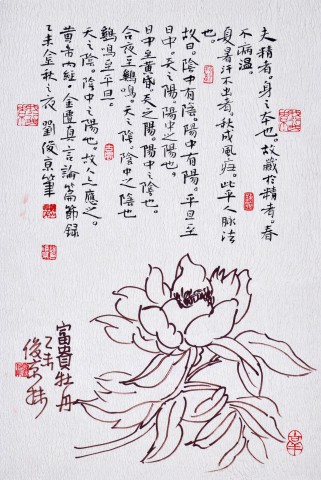 夫精者。身之本也。故藏於精者。春
不病溫
夏暑汗不出者。秋成風瘧。此平人脈法
也。
故曰。陰中有陰。陽中有陽。平旦至
日中。天之陽。陽中之陽也。
日中至黃昏。天之陽。陽中之陰也。
合夜至鷄鳴。天之陰。陰中之陰也
鷄鳴至平旦。
天之陰。陰中之陽也。故人亦應之。
黃帝内經。金匱真言論篇節録
乙未金秋之夜 劉俊京筆
富貴牡丹
乙未
俊京